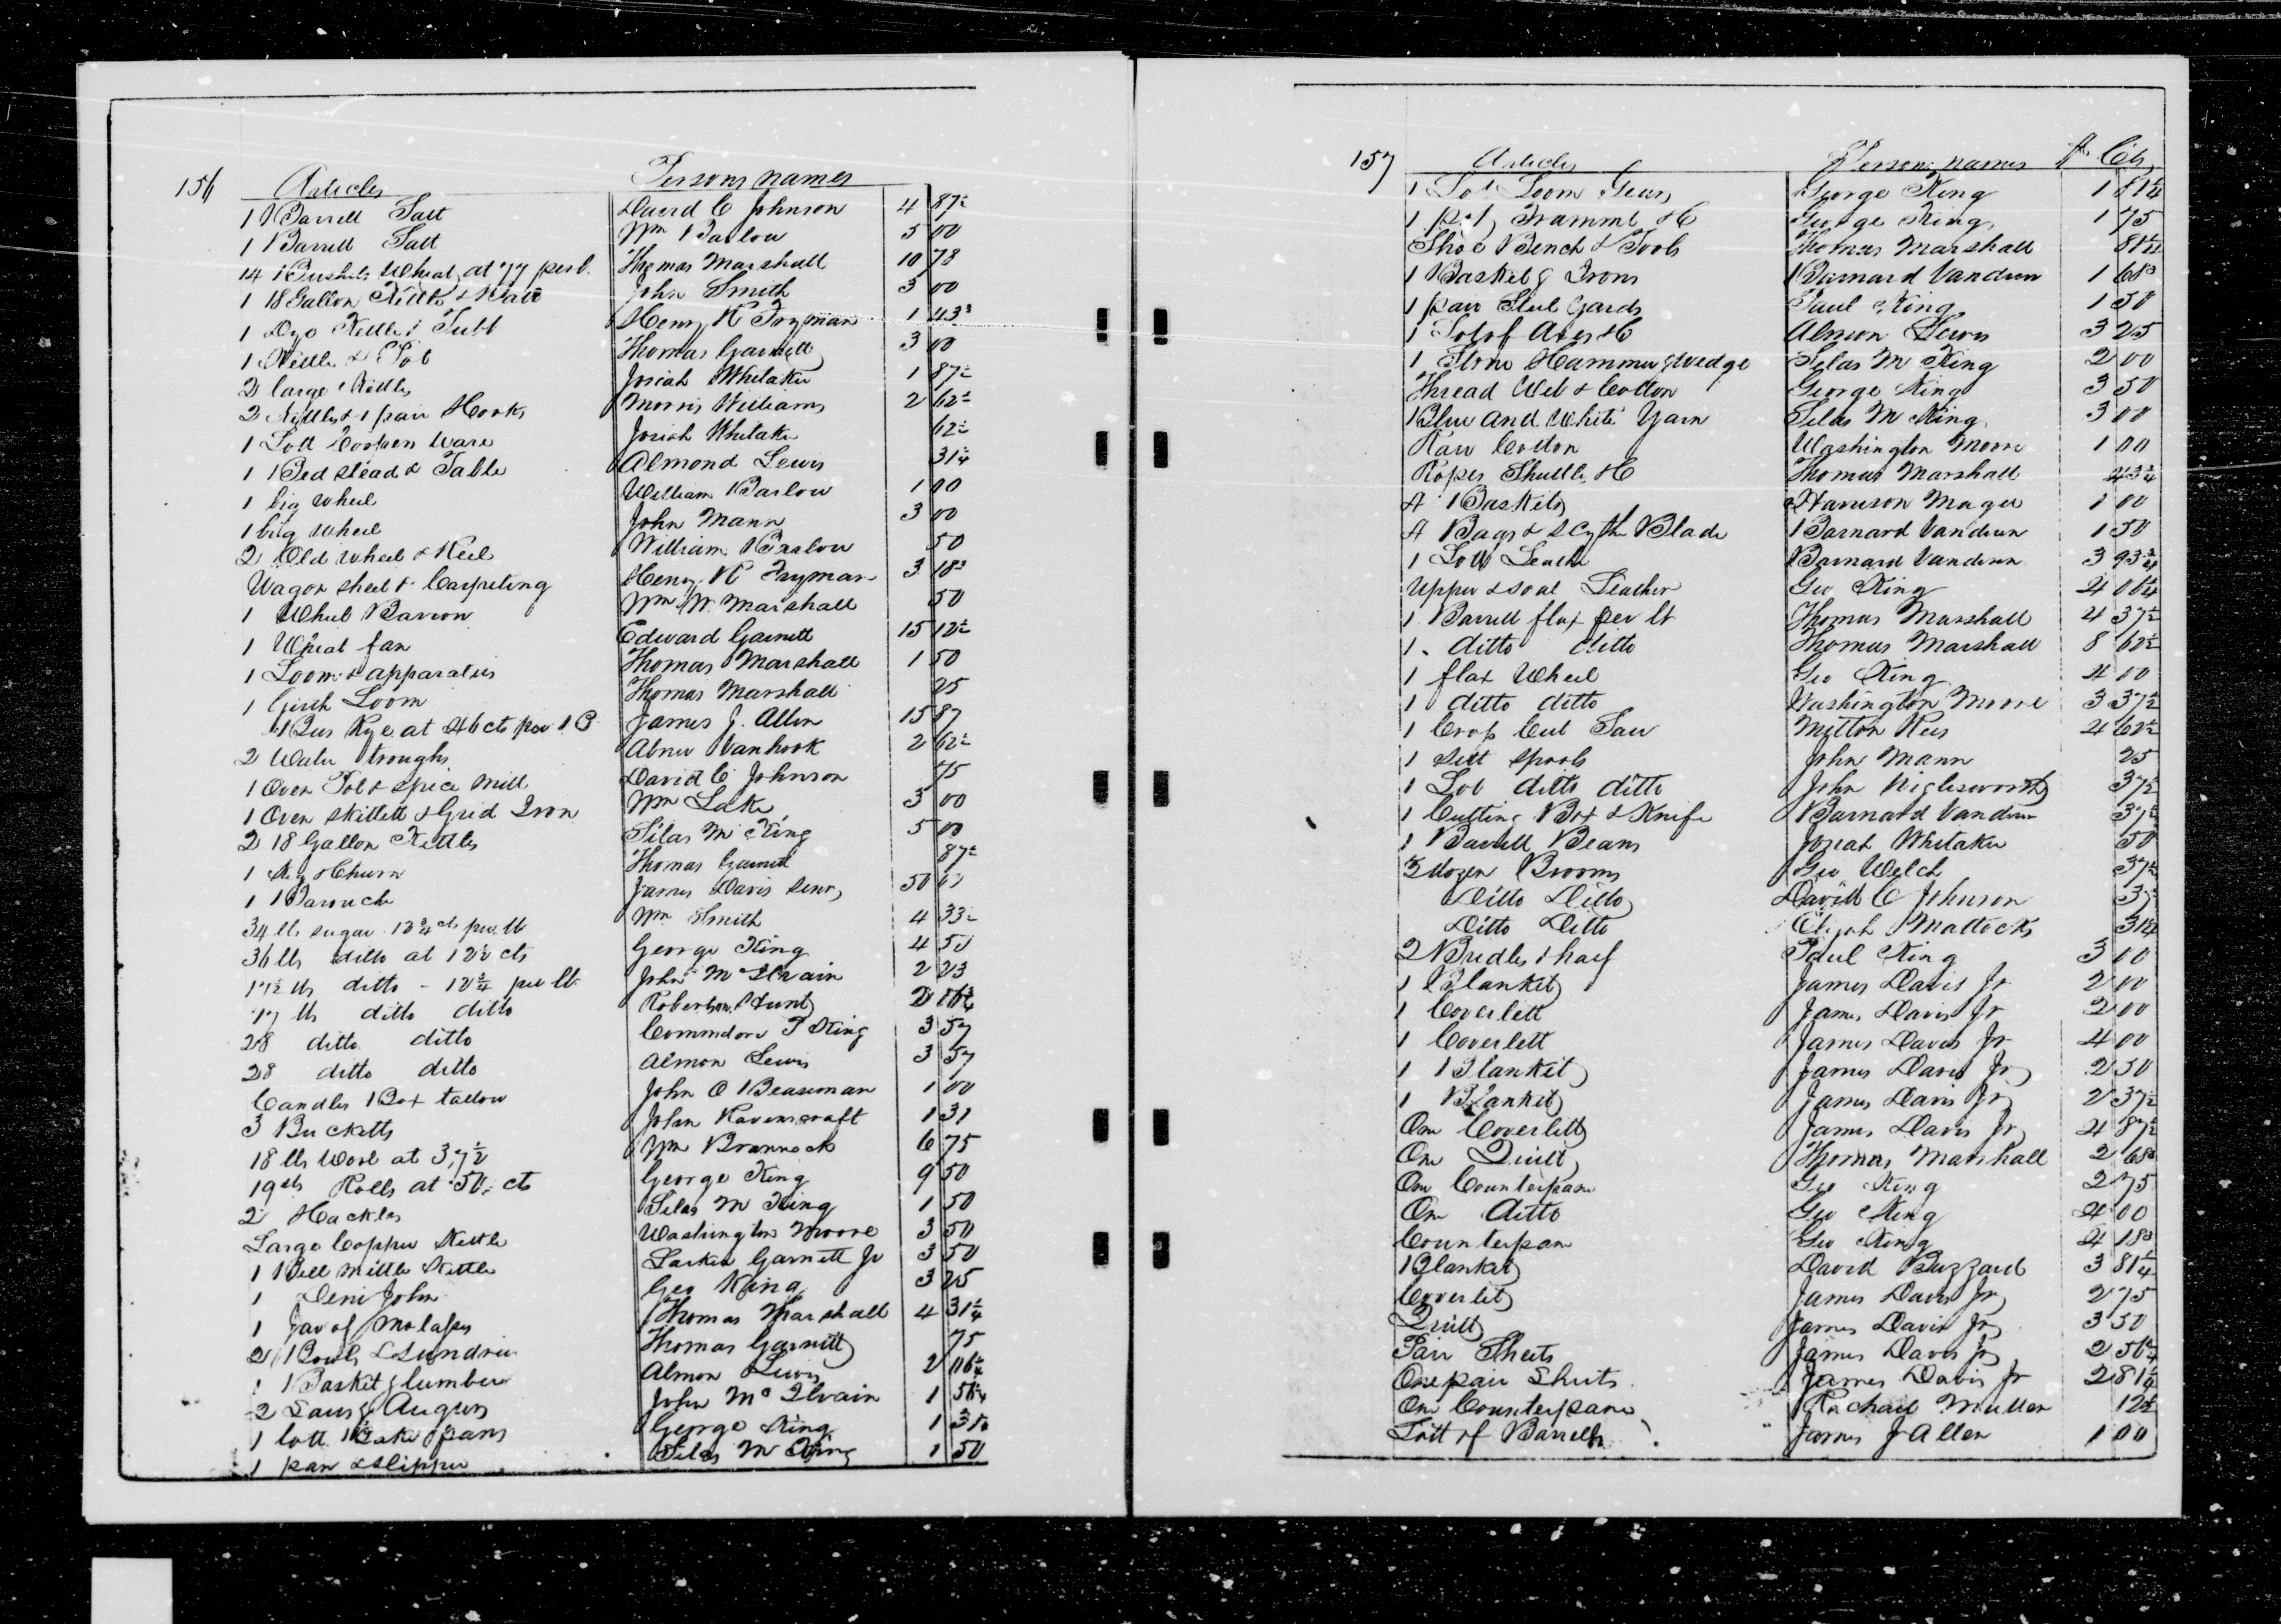 156 Articles Persons names
1 Barrell Salt David C Johnson 4 87½
1 Barrell Salt Wm Barlow 5 00
14 Bushels Wheat at 77 per b. Thomas Marshall 10 78
1 18 Gallon Kettle & John Smith 3 00
1 Dye Kettle & Tubb Henry K Fryman 1 43¾
1 Kettle & Pot Thomas Garnett 3 00
2 large Kettles Josiah Whitaker 1 87½
2 Kettles & 1 pair Hooks Morris Williams 2 62½
1 Lott Coopen Ware Josiah Whitaker 62½
1 Bed stead & Table Almond Lewis 31¼
1 big wheel William Barlow 1 00
1 big wheel John Mann 3 00
2 Old Wheel & Reel William Barlow 50
Wagon sheet & Carpeting Henry K Fryman 3 18¾
1 Wheel Barrow Wm W. Marshall 50
1 Wheat fan Edward Garnett 15 12½
1 Loom & apparatus Thomas Marshall 1 50
1 Girth Loom Thomas Marshall 25
Bus Rye at 46 cts per B James J. Allen 15 87
2 Water troughs Abner Vanhook 2 62½
1 Oven Pot & spice Mill David C Johnson 75
1 Oven skillett & Grid Iron Wm Lake 3 00
2 18 Gallon Kettles Silas M King 5 00
1 Keg & Churn Thomas Garnett 87½
1 Barouche James Davis Senr 50
34 lb sugar 12¾ cts per lb Wm Smith 4 33½
36 lb ditto at 12½ cts George King 4 50
17½ lb ditto - 12¾ per lb John McIlvain 2 23
17 lb ditto ditto Robertson Hunt 2
28 ditto ditto Commodore P King 3 57
28 ditto ditto Almon Lewis 3 57
Candles Box tallow John O Beaseman 1 00
3 Bucketts John Ravenscraft 1 31
18 lb Wool at 37½ Wm Brannock 6 75
19 lb Rolls at 50 cts George King 9 50
2 Hackles Silas M King 1 50
Large Copper Kettle Washington Moore 3 50
1 Bell Mittle Kettle Larkin Garnett Jr 3 50
1 Demi John Geo King 3 25
1 Jar of Molasses Thomas Marshall 4 31¼
2 Bowls & Sundries Thomas Garnett 75
1 Basket & lumber Almon Lewis 2
2 Saws & Augurs John McIlvain 1 56¼
1 lott Cake pans George King 1
1 pan & slipper Silas M King 1 50
157 Articles Persons names $ Cts
1 Lot Loom Gears George King 1 81¼
1 pot Trammel &C George King 1 75
Shoe Bench & Tools Thomas Marshall 81¼
1 Basket & Irons Barnard Vanderen 1 68¾
1 pair Steel Yards Paul King 1 50
1 Lot of Axes &C Almon Lewis 3 25
1 Stone Hammer & wedge Silas M King 2 00
Thread Web & Cotton George King 3 50
Blue and White Yarn Silas M King 3 00
Raw Cotton Washington Moore 1 00
Ropes Shuttle &C Thomas Marshall 43¾
4 Baskets Harrison Magee 1 00
4 Bags & scythe Blade Barnard Vanderen 1 50
1 Lott Leather Barnard Vanderen 3 93¾
Upper & soal Leather Geo King 4 06¼
1 Barrell flax per lb Thomas Marshall 4 37½
1 ditto ditto Thomas Marshall 8 62½
1 flax Wheel Geo King 4 00
1 ditto ditto Washington Moore 3 37½
1 Crop Cut Saw Milton Rees 4 62½
1 sett spools John Mann 25
1 Lot ditto ditto John Wiglesworth 37½
1 Cutting Box & Knife Barnard Vanderen 37½
1 Barrell Beans Josiah Whitaker 50
½ dozen Brooms Geo Welch 37½
Ditto Ditto David C Johnson 37½
Ditto Ditto Elijah Mattocks 31¼
2 Bridles & half Paul King 3 00
1 Blanket James Davis Jr 2 00
1 Coverlett James Davis Jr 2 00
1 Coverlett James Davis Jr 4 00
1 Blanket James Davis Jr 2 50
1 Blanket James Davis Jr 2 37½
One Coverlett James Davis Jr 4 87½
One Quilt Thomas Marshall 2 68¾
One Counterpane Geo King 2 75
One ditto Geo King 4 00
Counterpane Geo King 4 18¾
Blanket David Buzzard 3 81¼
Coverlet James Davis Jr 2 75
Quilt James Davis Jr 3 50
Pair Sheets James Davis Jr 2 56¼
One pair Sheets James Davis Jr 2 81¼
One Counterpane Rachael Mullen 12½
Lott of Barrells James J Allen 1 00